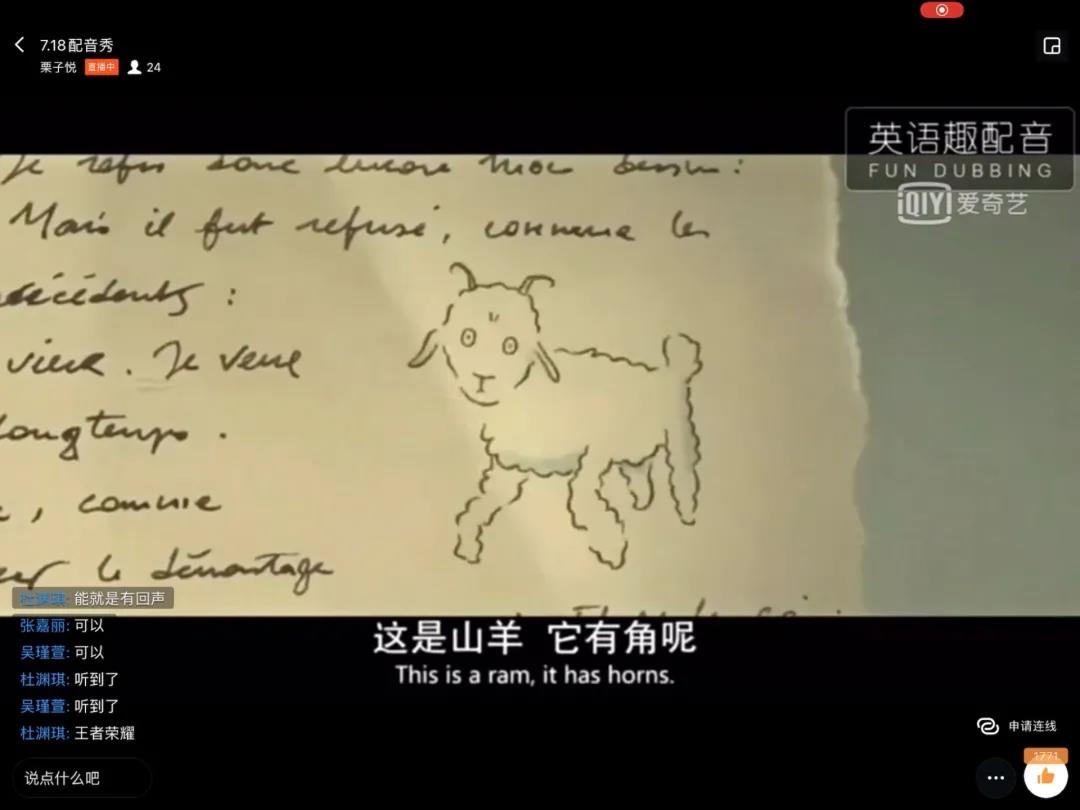 7.18配音秀
栗子悦 直播中 24
英语趣配音
FUN DUBBING
iQIYI 爱奇艺
Je refis donc encore mon dessin :
Mais il fut refusé, comme les
précédents :
vieux. Je veux
longtemps.
, comme
le démontage
杜渊琪: 能就是有回声
张嘉丽: 可以
吴瑾萱: 可以
杜渊琪: 听到了
吴瑾萱: 听到了
杜渊琪: 王者荣耀
这是山羊 它有角呢
This is a ram, it has horns.
申请连线
说点什么吧
1771